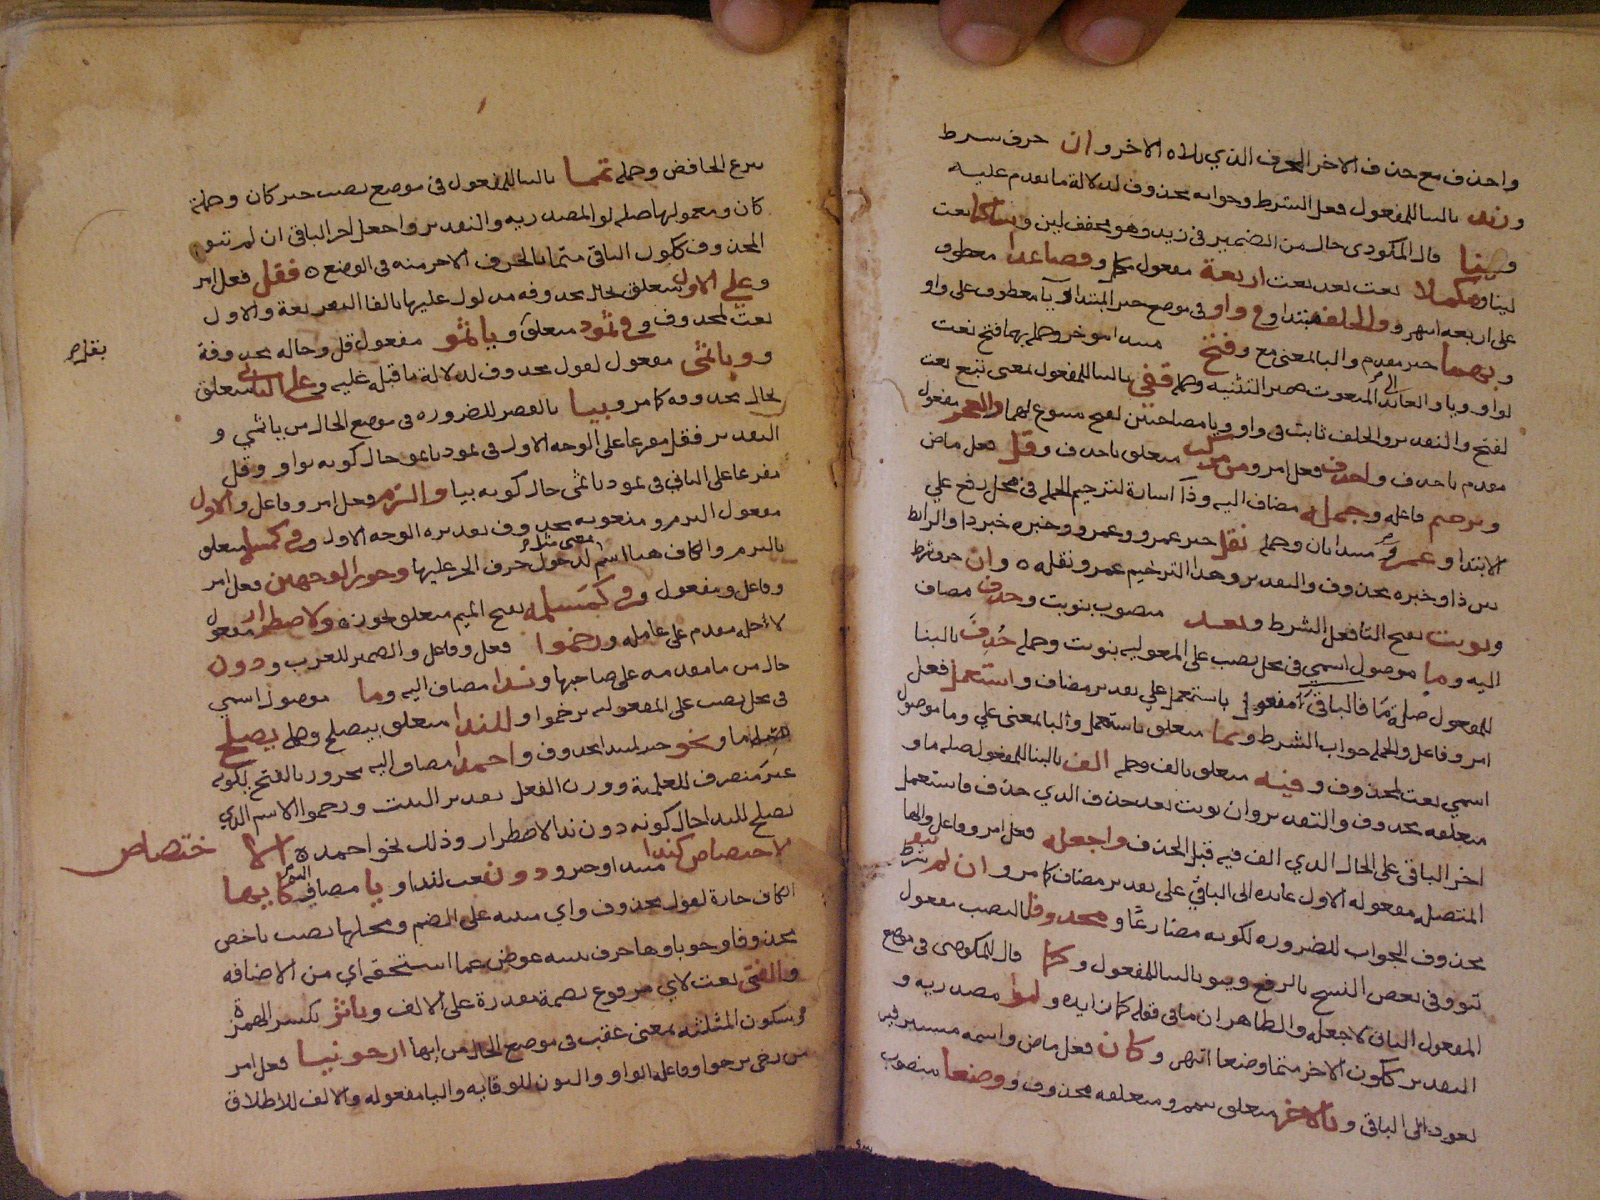 واحذف مع حذف الاخر الحرف الذي تلاه الاخر وان حرف شرط
وزيد بالبنا للمفعول فعل الشرط وجوابه محذوف لدلالة ما تقدم عليه
ولينا قال المكودي حال من الضمير في زيد وهو مخفف لين وساكنا نعت
لينا ومكملا نعت بعد نعت اربعة مفعول مكملا وفصاعدا معطوف
على اربعه انتهى والخلف مبتدا وفي واو في موضع خبر المبتدا ويا معطوف على واو
وبهما خبر مقدم والبا بمعنى مع وفتح مبتدا موخر وجملة بهما فتح نعت
لواو ويا والعائد الى المنعوت ضمير التثنيه وجملة قفي بالبنا للمفعول بمعنى تبع نعت
لفتح والتقدير والخلف ثابت في واو ويا مصاحبتين لفتح متبوع لهما والعجز مفعول
مقدم باحذف واحذف فعل امر ومن مركب متعلق باحذف وقل فعل ماض
وترخيم فاعله وجملة مضاف اليه وذا اشارة لترخيم الجملة في محل رفع على
الابتدا وعمرو مبتدا ثان وجملة نقل خبر عمرو وعمرو وخبره خبر ذا والرابط
بين ذا وخبره محذوف والتقدير وهذا الترخيم عمرو نقله ه وان حرف شرط
ونويت بفتح التا فعل الشرط وبعد منصوب بنويت وحذف مضاف
اليه وما موصول اسمي في محل نصب على المفعوليه بنويت وجملة حذف بالبنا
للمفعول صلة ما فالباقي مفعول باستعمل على تقدير مضاف واستعمل فعل
امر وفاعل والجملة جواب الشرط وبما متعلق باستعمل والبا بمعنى على وما موصول
اسمي نعت لمحذوف وفيه متعلق بالف وجملة الف بالبنا للمفعول صلة ما و
متعلقه محذوف والتقدير وان نويت بعد حذف الذي حذف فاستعمل
اخر الباقي على الحال الذي الف فيه قبل الحذف واجعله فعل امر وفاعل والها
المتصلة مفعوله الاول عائده الى الباقي على تقدير مضاف كما مر وان لم تنو شرط
محذوف الجواب للضروره لكونه مضارعا ومحذوفا بالنصب مفعول
تنو وفي بعض النسخ بالرفع وينو بالبنا للمفعول وكما قال المكودي في موضع
المفعول الثاني لاجعله والظاهر ان ما في قوله كما زايده ولو مصدريه و
التقدير ككون الاخر متمما وضعا انتهى وكان فعل ماض واسمه مستتر فيه
يعود الى الباقي وبالاخر متعلق بتمم ومتعلقه محذوف ووضعا منصوب
بنزع الخافض وجملة تمما بالبنا للمفعول في موضع نصب خبر كان وجملة
كان ومعموليها صلة لو المصدريه والتقدير واجعل اخر الباقي ان لم تنو
المحذوف ككون الباقي متمما بالحرف الاخر منه في الوضع ه فقل فعل امر
وعلى الاول متعلق بحال محذوفه مدلول عليها بالفا التفريعة والاول
نعت لمحذوف وفي ثمود متعلق ويا ثمو مفعول قل وحاله محذوفة
وويا ثمي مفعول لقول محذوف لدلالة ما قبله عليه وعلى الثاني متعلق
بحال محذوفه كما مر وبيا بالقصر للضروره في موضع الحال من يا ثمي و
التقدير فقل مفرعا على الوجه الاول في ثمود يا ثمو حال كونه بواو وقل
مفرعا على الثاني في ثمود يا ثمي حال كونه بيا والتزم فعل امر وفاعل والاول
مفعول التزم ومنعوته محذوف تقديره الوجه الاول وفي كمسلمة متعلق
بالتزم والكاف هنا اسم بمعنى مثل لدخول حرف الجر عليها وجوز الوجهين فعل امر
وفاعل ومفعول وفي كمسلمه بفتح الميم متعلق بجوز ه ولاضطرار مفعول
لاجله مقدم على عامله ورخموا فعل وفاعل والضمير للعرب ودون
حال من ما مقدمه على صاحبها وندا مضاف اليه وما موصول اسمي
في محل نصب على المفعوليه برخموا وللندا متعلق بيصلح وجملة يصلح
صلة ما ونحو خبر لمبتدا محذوف واحمدا مضاف اليه مجرور بالفتح لكونه
غير منصرف للعلمية ووزن الفعل تقدير البيت ورخموا الاسم الذي
يصلح للندا حال كونه دون ندا لاضطرار وذلك نحو احمد ه الاختصاص
الاختصاص كندا مبتدا وخبر ودون نعت لندا ويا مضاف اليه كايها
الكاف جارة لقول محذوف واي مبنيه على الضم ومحلها نصب باخص
محذوفا وجوبا وها حرف تنبيه عوض عما استحقه اي من الاضافه
والفتى نعت لاي مرفوع بضمة مقدرة على الالف وباثر بكسر الهمزة
وسكون المثلثه بمعنى عقب في موضع الحال من ايها ارجونيا فعل امر
من رجى يرجوا وفاعله الواو والنون للوقايه واليا مفعوله والالف للاطلاق